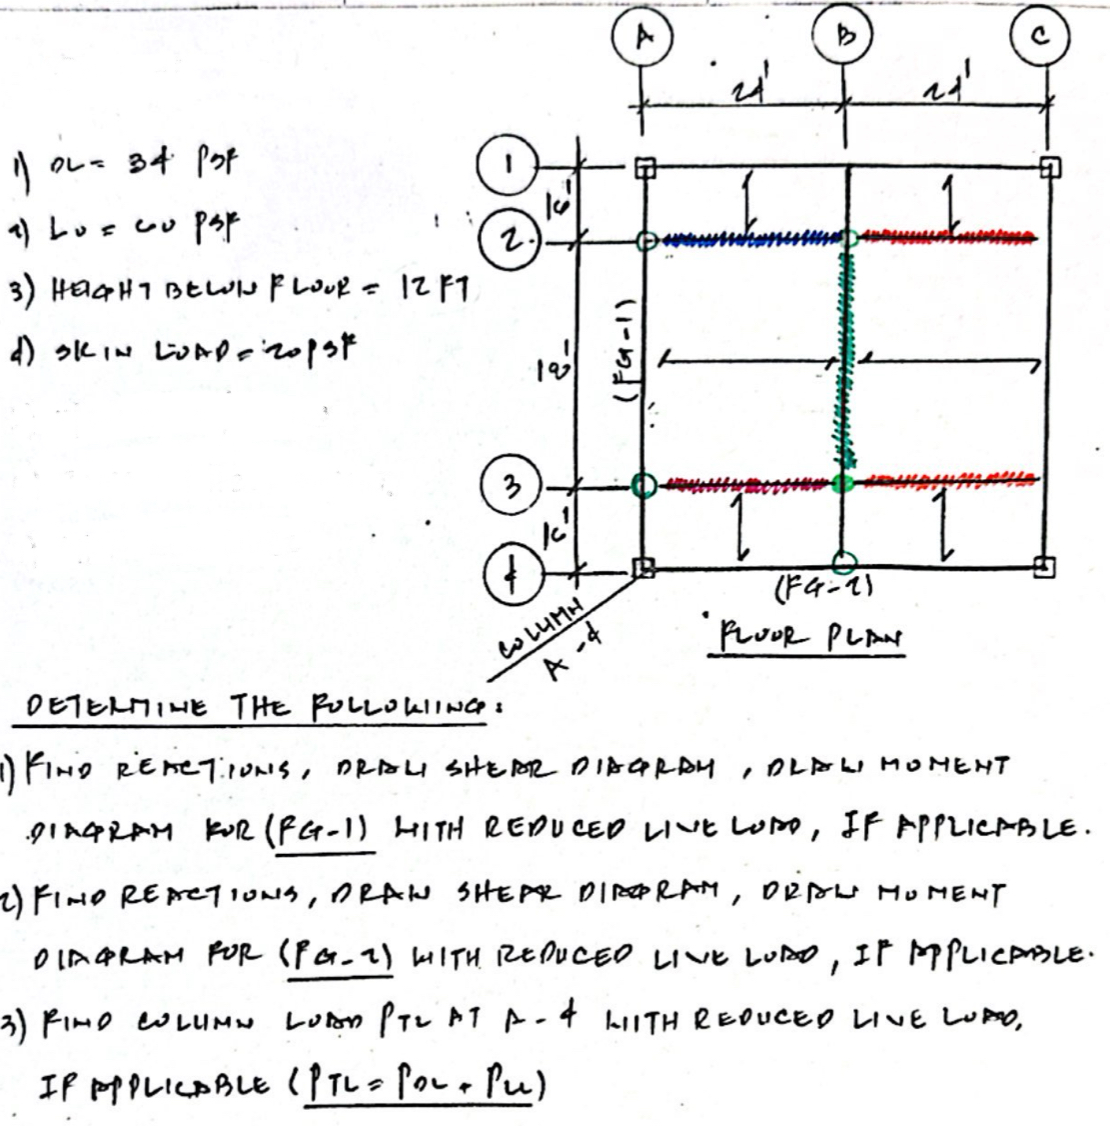 A B C
24' 24'
1) DL = 34 PSF
2) Lo = 60 PSF
3) HEIGHT BELOW FLOOR = 12 FT
4) SKIN LOAD = 20 PSF
1
16'
2
(FG-1)
3
16'
4
(FG-2)
COLUMN
A-4
FLOOR PLAN
DETERMINE THE FOLLOWING:
1) FIND REACTIONS, DRAW SHEAR DIAGRAM, DRAW MOMENT
DIAGRAM FOR (FG-1) WITH REDUCED LIVE LOAD, IF APPLICABLE.
2) FIND REACTIONS, DRAW SHEAR DIAGRAM, DRAW MOMENT
DIAGRAM FOR (FG-2) WITH REDUCED LIVE LOAD, IF APPLICABLE.
3) FIND COLUMN LOAD PTL AT A-4 WITH REDUCED LIVE LOAD,
IF APPLICABLE (PTL = PDL + PLL)